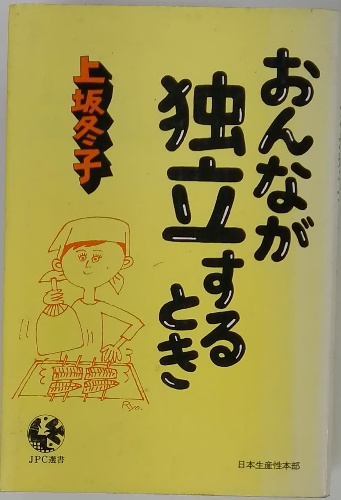 おんなが
独立する
とき
上坂冬子
Ryo.
JPC選書
日本生産性本部